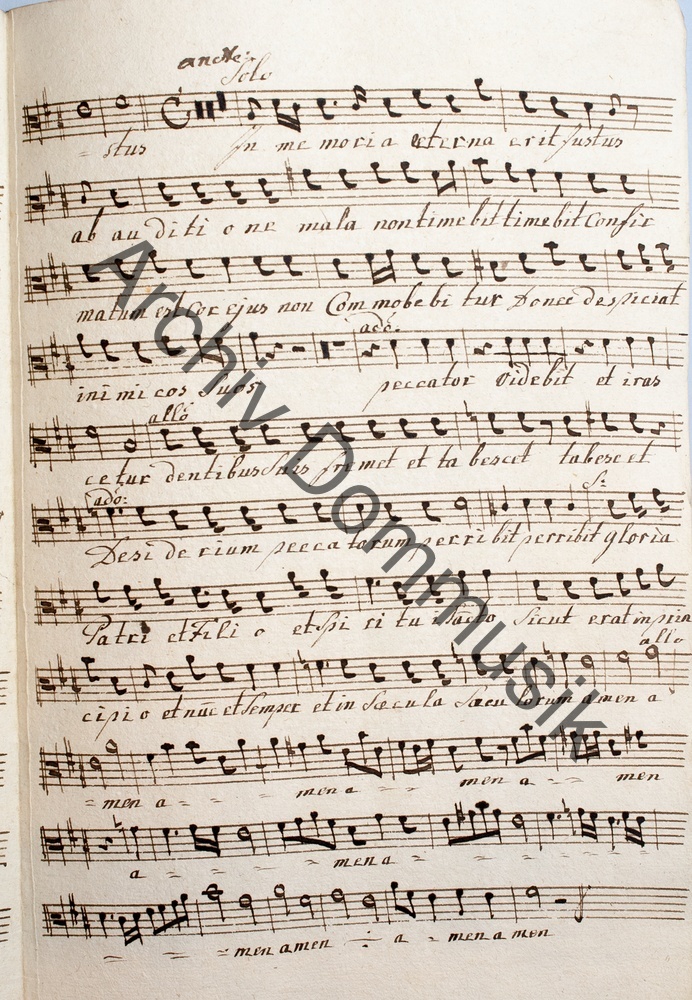 andte:
Solo
= stus In me moria eterna erit Justus
ab au di ti o ne mala non timebit timebit Confir
matum est Cor ejus non Com mobebi tur Donec despiciat
ado:
ini mi cos Suos peccator Videbit et iras
allo
ce tur dentibus Suis fremet et ta bescet tabescet
ado: S:
Desi de rium pecca torum perribit perribit gloria
Patri et Fili o et Spi ri tu i Sacto Sicut erat in prin
allo
cipi o et nuc et Semper et in Saecula Saecu lorum amen a
= men a = = = men a = = = men a = = men
a = = = = men a = = = = =
= = = = men amen = : = a = men a men
Archiv Dommusik